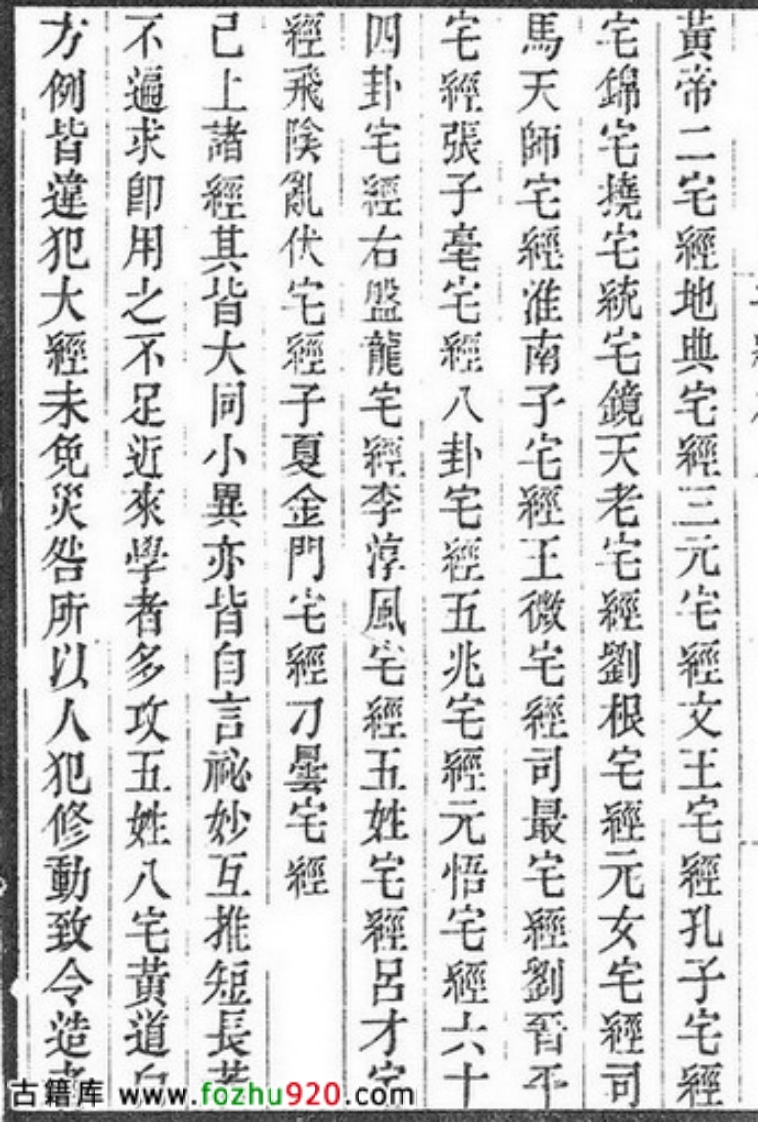 黃帝二宅經地典宅經三元宅經文王宅經孔子宅經
宅錦宅撓宅統宅鏡天老宅經劉根宅經元女宅經司
馬天師宅經淮南子宅經王微宅經司最宅經劉晉平
宅經張子毫宅經八卦宅經五兆宅經元悟宅經六十
四卦宅經右盤龍宅經李淳風宅經五姓宅經呂才宅
經飛陰亂伏宅經子夏金門宅經刀曇宅經
已上諸經其皆大同小異亦皆自言祕妙互推短長若
不遍求即用之不足近來學者多攻五姓八宅黃道白
方例皆違犯大經未免災咎所以人犯修動致令造者
古籍库 www.fozhu920.com